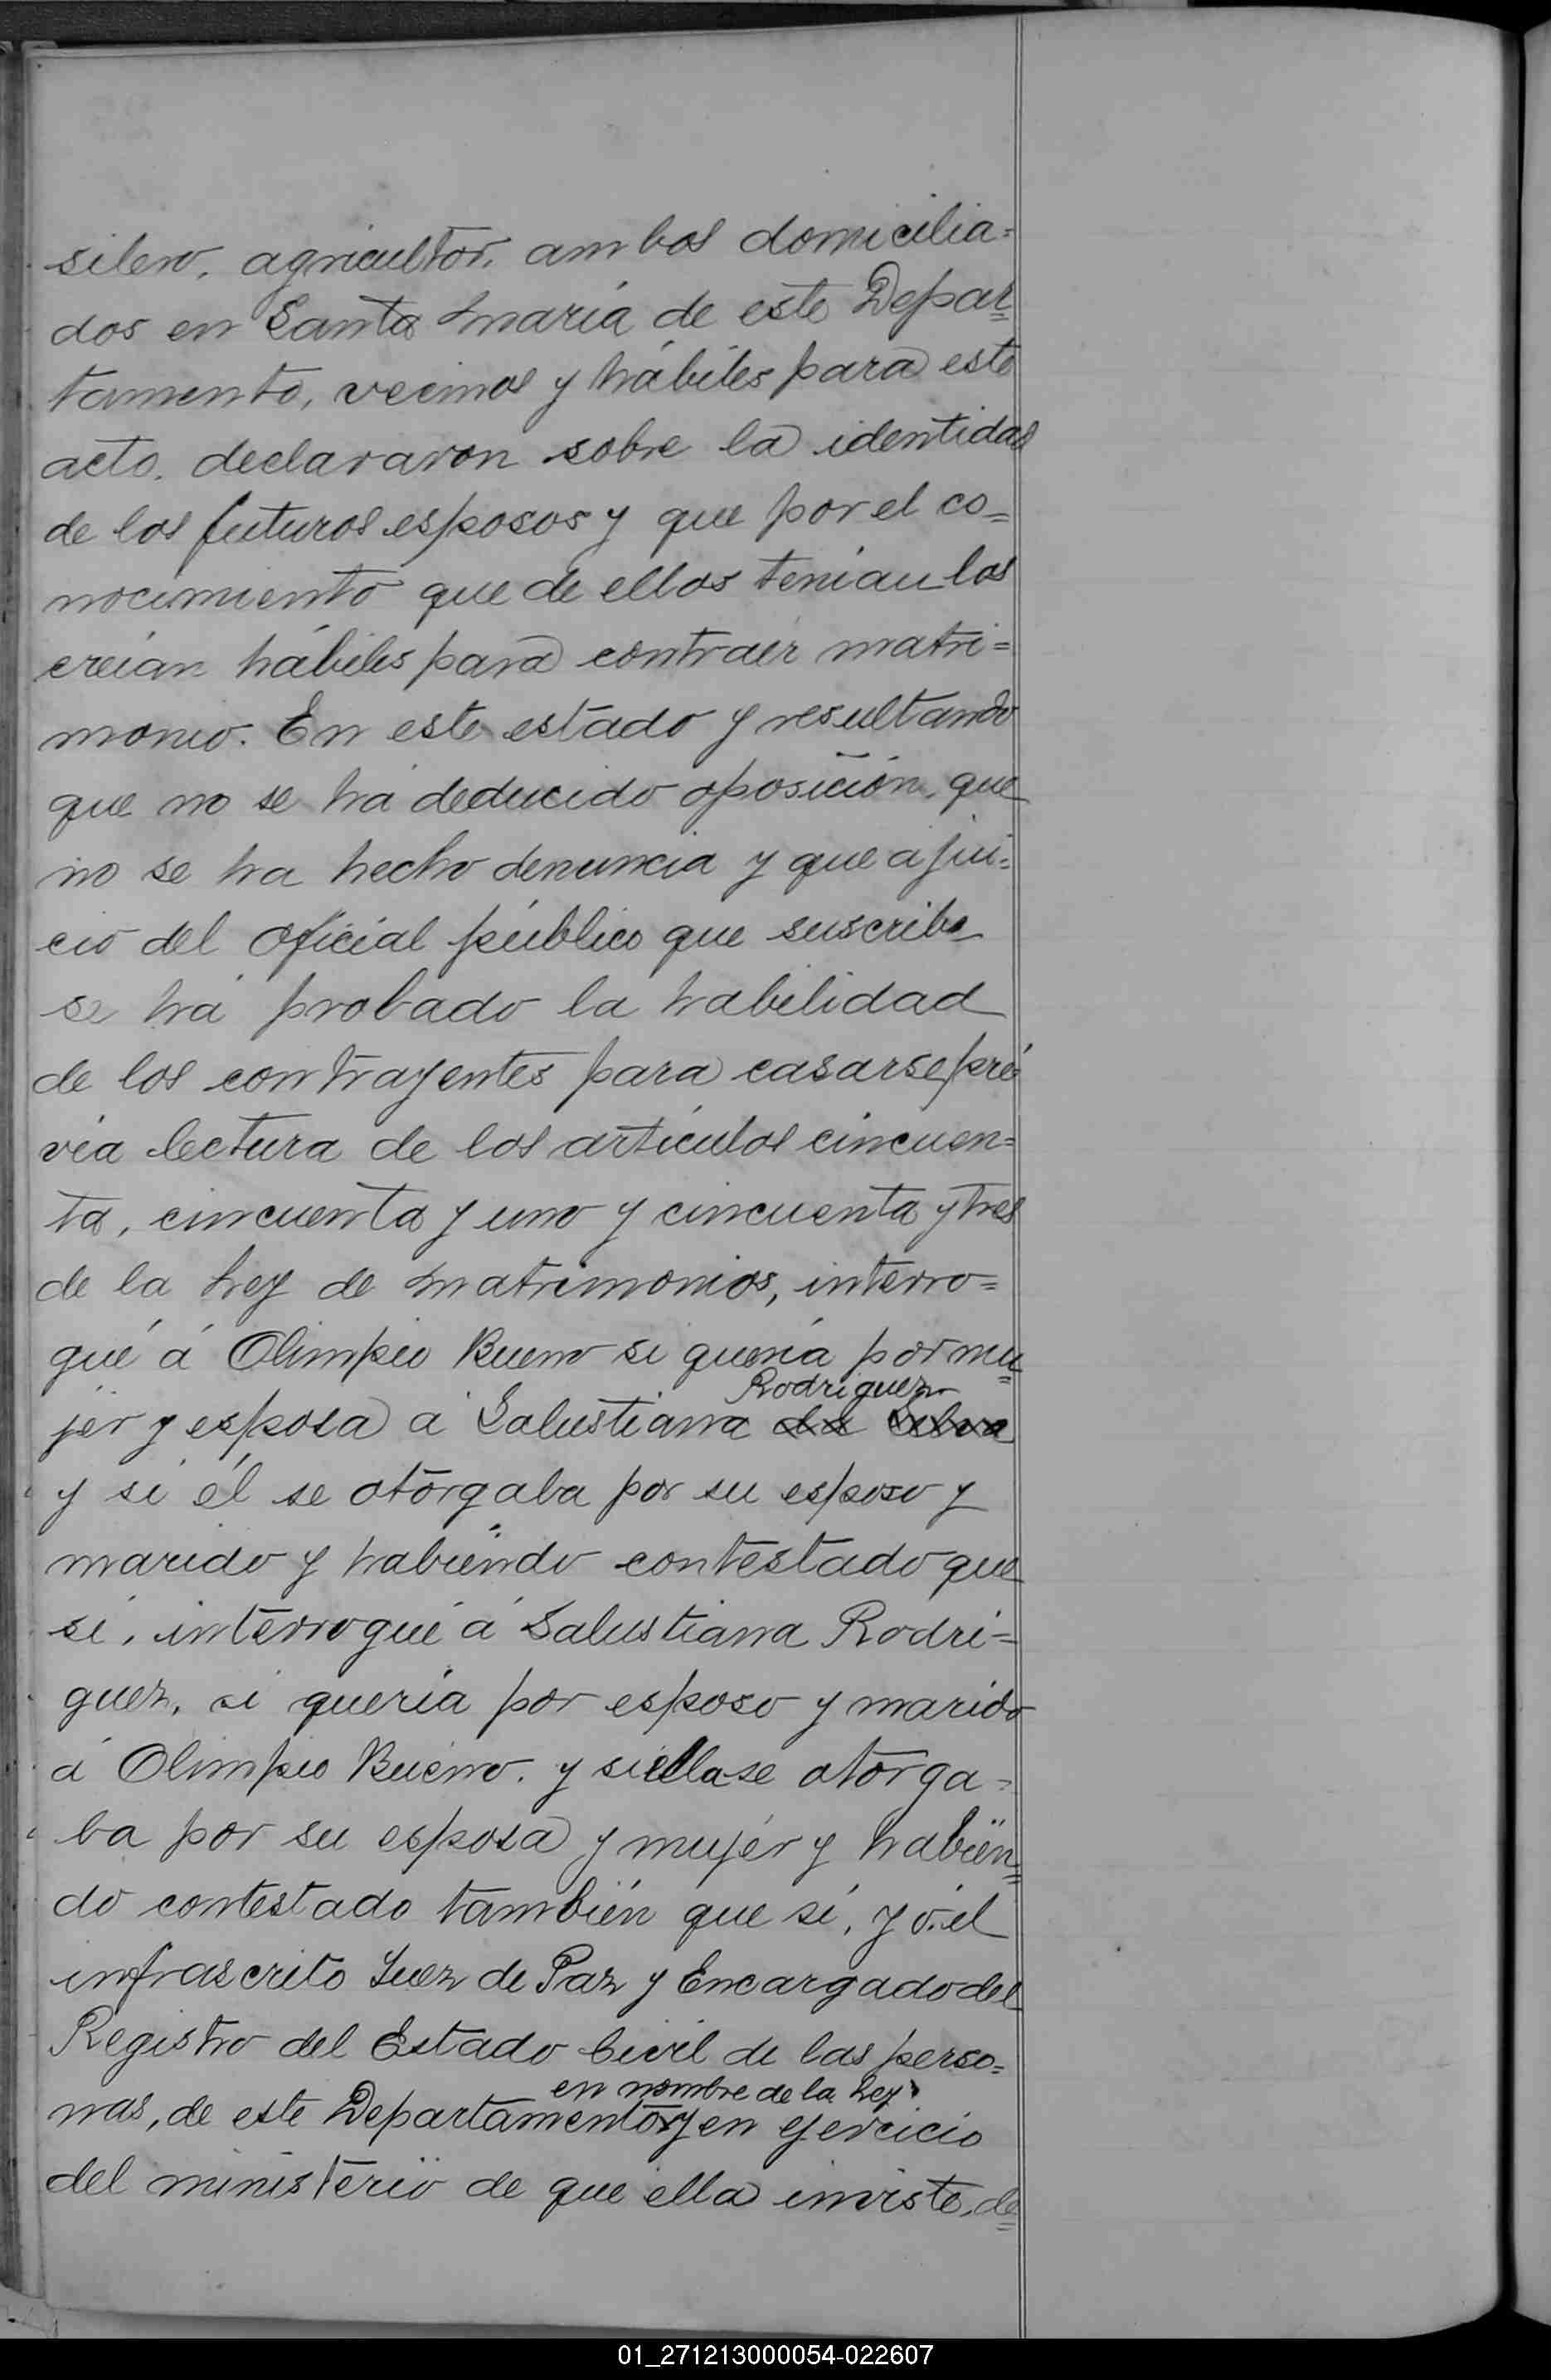 silero, agricultor, ambos domicilia=
dos en Santa María de este Depar=
tamento, vecinos y hábiles para este
acto, declararon sobre la identidad
de los futuros esposos y que por el co=
nocimiento que de ellos tenían los
creían hábiles para contraer matri=
monio. En este estado y resultando
que no se ha deducido oposición, que
no se ha hecho denuncia y que a jui=
cio del oficial público que suscribe
se há probado la habilidad
de los contrayentes para casarse, pré
via lectura de los artículos cincuen=
ta, cincuenta y uno y cincuenta y tres
de la Ley de Matrimonios, interro=
gué á Olimpio Bueno si quería por mu=
Rodriguez
jer y esposa á Salustiana da Silva
y si él se otorgaba por su esposo y
marido y habiendo contestado que
sí, interrogué á Salustiana Rodri=
guez, si quería por esposo y marido
á Olimpio Bueno, y si ella se otorga=
ba por su esposa y mujer y habien=
do contestado también que sí, yó, el
infrascrito Juez de Paz y Encargado del
Registro del Estado Civil de las perso=
en nombre de la Ley
nas, de este Departamento y en ejercicio
del ministerio de que ella inviste, de=
01_271213000054-022607